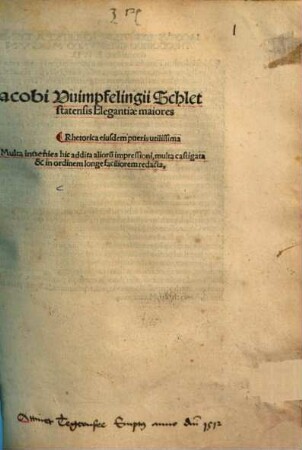 1
acobi Vuimpfelingii Schlet
statensis Elegantiæ maiores
Rhetorica eiusdem pueris utilissima
Multa inuenies hic addita aliorū impressioni, multa castigata
& in ordinem longe faciliorem redacta,
Tegernsee Emptus anno dñi 1512